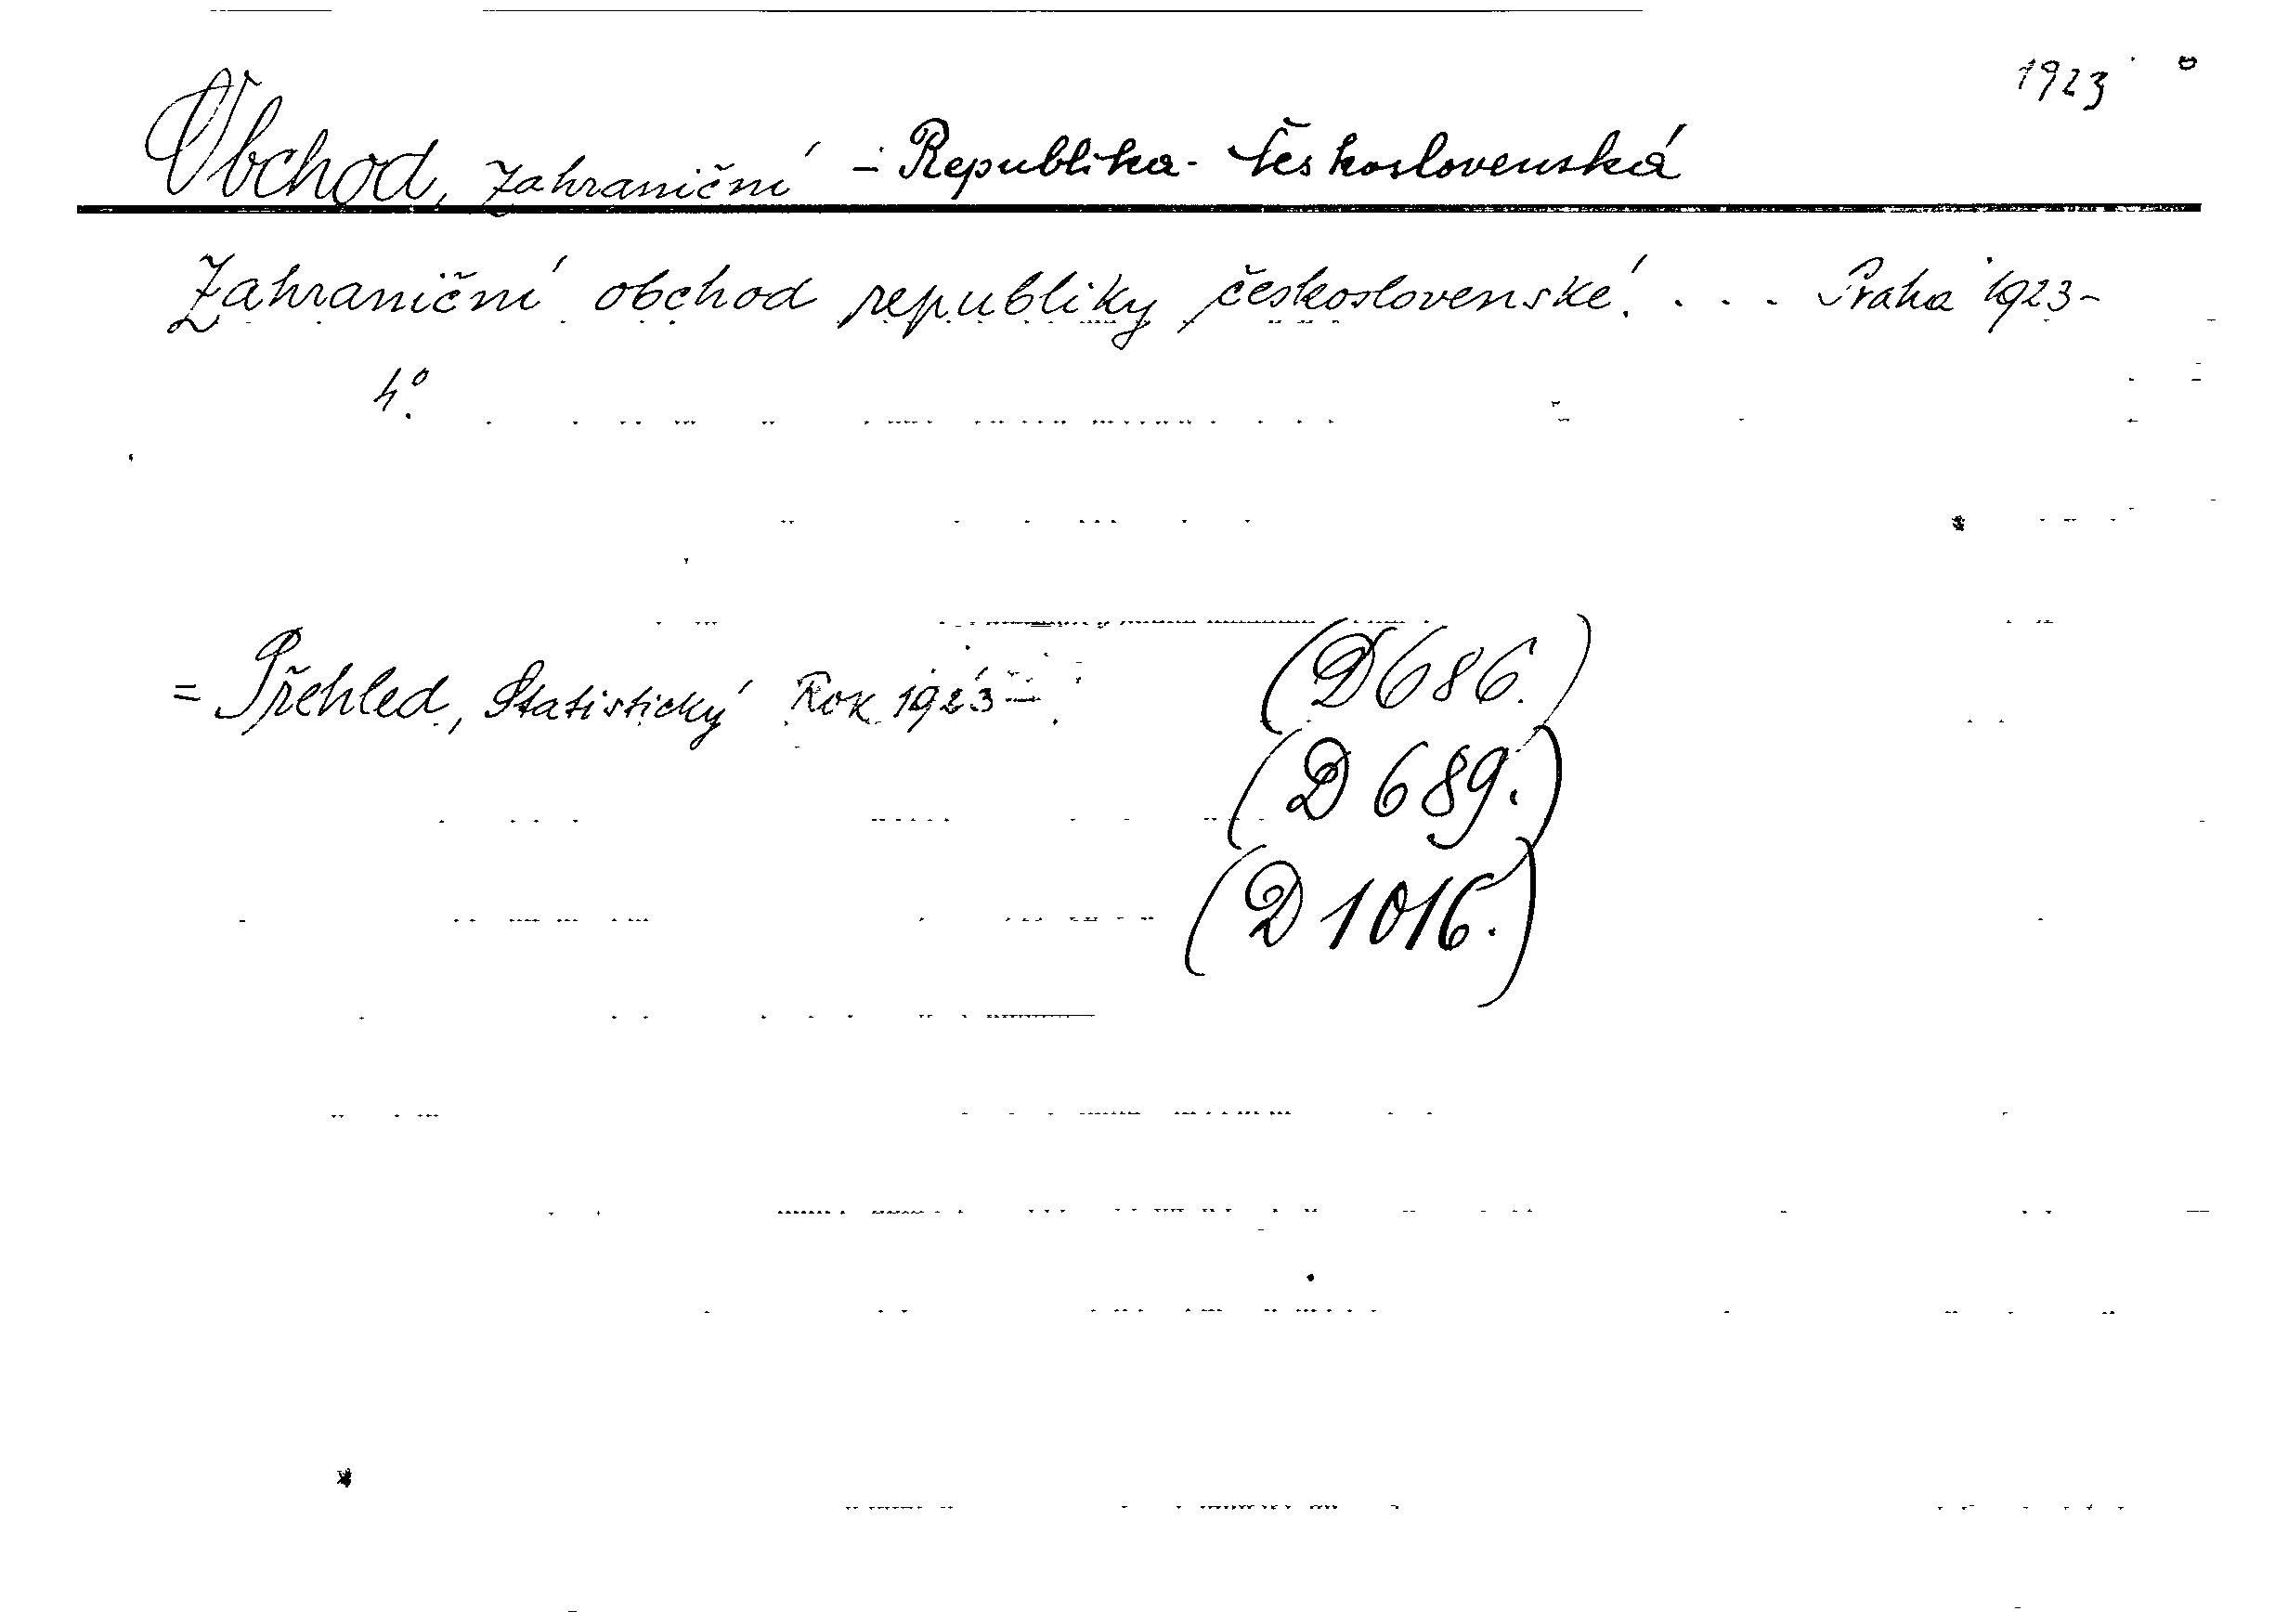 1923
Obchod, zahraniční - Republika - Československá
Zahraniční obchod republiky československé. . . . Praha 1923-
4°.
= Přehled, Statistický Rok 1923 - (D 686.)
(D 689.)
(D 1016.)